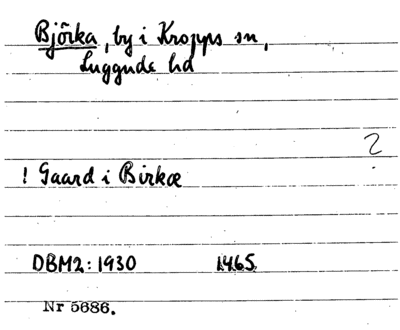 Björka, by i Kropps sn,
Luggude hd
?
! Gaard i Birkæ
DBM2: 1930 1465
Nr 5686.